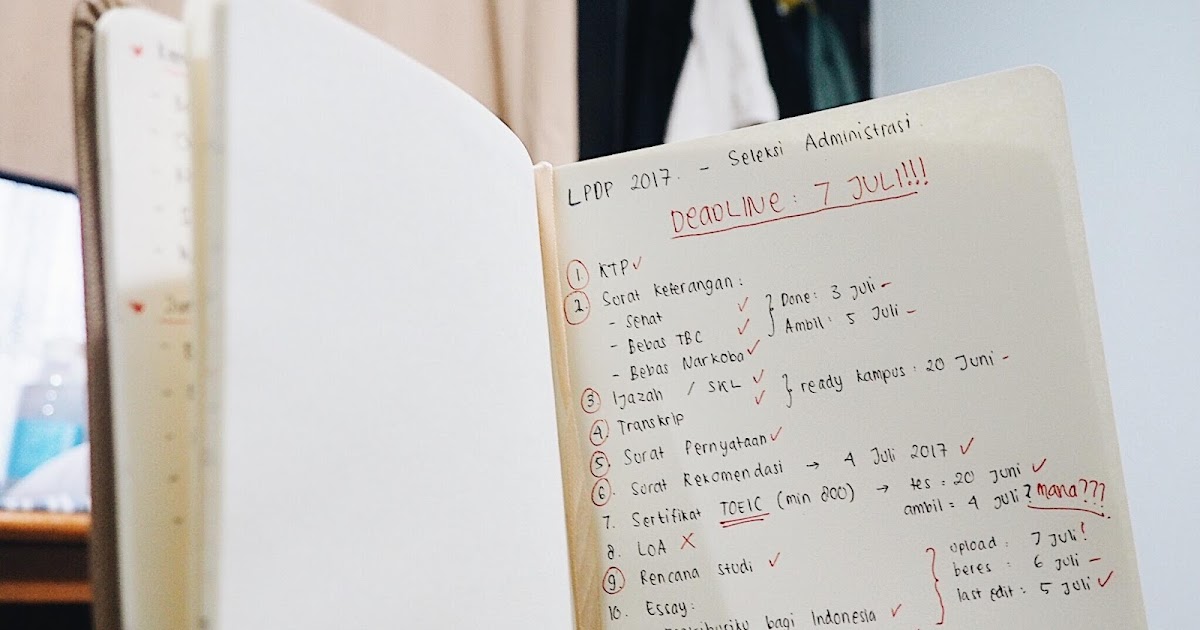 LPDP 2017. - Seleksi Administrasi.
DEADLINE : 7 JULI!!!
1 KTP ✓
2. Surat keterangan :
- Sehat ✓ } Done : 3 Juli -
- Bebas TBC ✓ Ambil : 5 Juli -
- Bebas Narkoba ✓
3. Ijazah / SKL ✓ } ready kampus : 20 Juni -
4. Transkrip ✓
5. Surat Pernyataan ✓
6. Surat Rekomendasi → 4 Juli 2017 ✓
7. Sertifikat TOEIC (min 800) → tes : 20 Juni ✓
ambil : 4 Juli ? Mana???
8. LOA X
9. Rencana studi ✓
10. Essay :
bagi Indonesia ✓
upload : 7 Juli!
beres : 6 Juli -
last edit : 5 Juli ✓